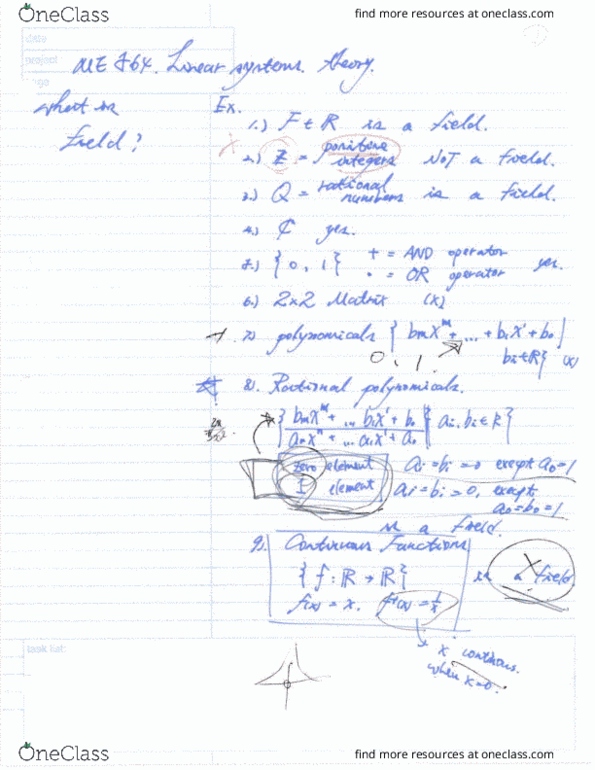 OneClass
find more resources at oneclass.com
date
project
ME 864. Linear systems. theory.
what is field?
Ex.
1.) F ∈ R is a field.
2.) Z = positive integers NOT a field.
3.) Q = rational numbers is a field.
4.) ₵ yes.
5.) {0, 1} + = AND operator
· = OR operator yes.
6.) 2x2 Matrix (x)
7.) polynomicals { bmx^m + ... + b1x' + b0 |
bi∈R} (x)
0, 1
8. Rational polynomicals.
{ bmx^m + ... b1x' + b0 / anx^n + ... a1x' + a0 | ai, bi ∈ R }
zero element ai = bi = 0 exept a0 = 1
1 element ai = bi = 0, exept
a0 = b0 = 1
is a field.
9. Continuous Functions
{ f : R → R } is a field X
f(x) = x. f-1(x) = 1/x
x continous.
when x=0.
task list:
OneClass
find more resources at oneclass.com